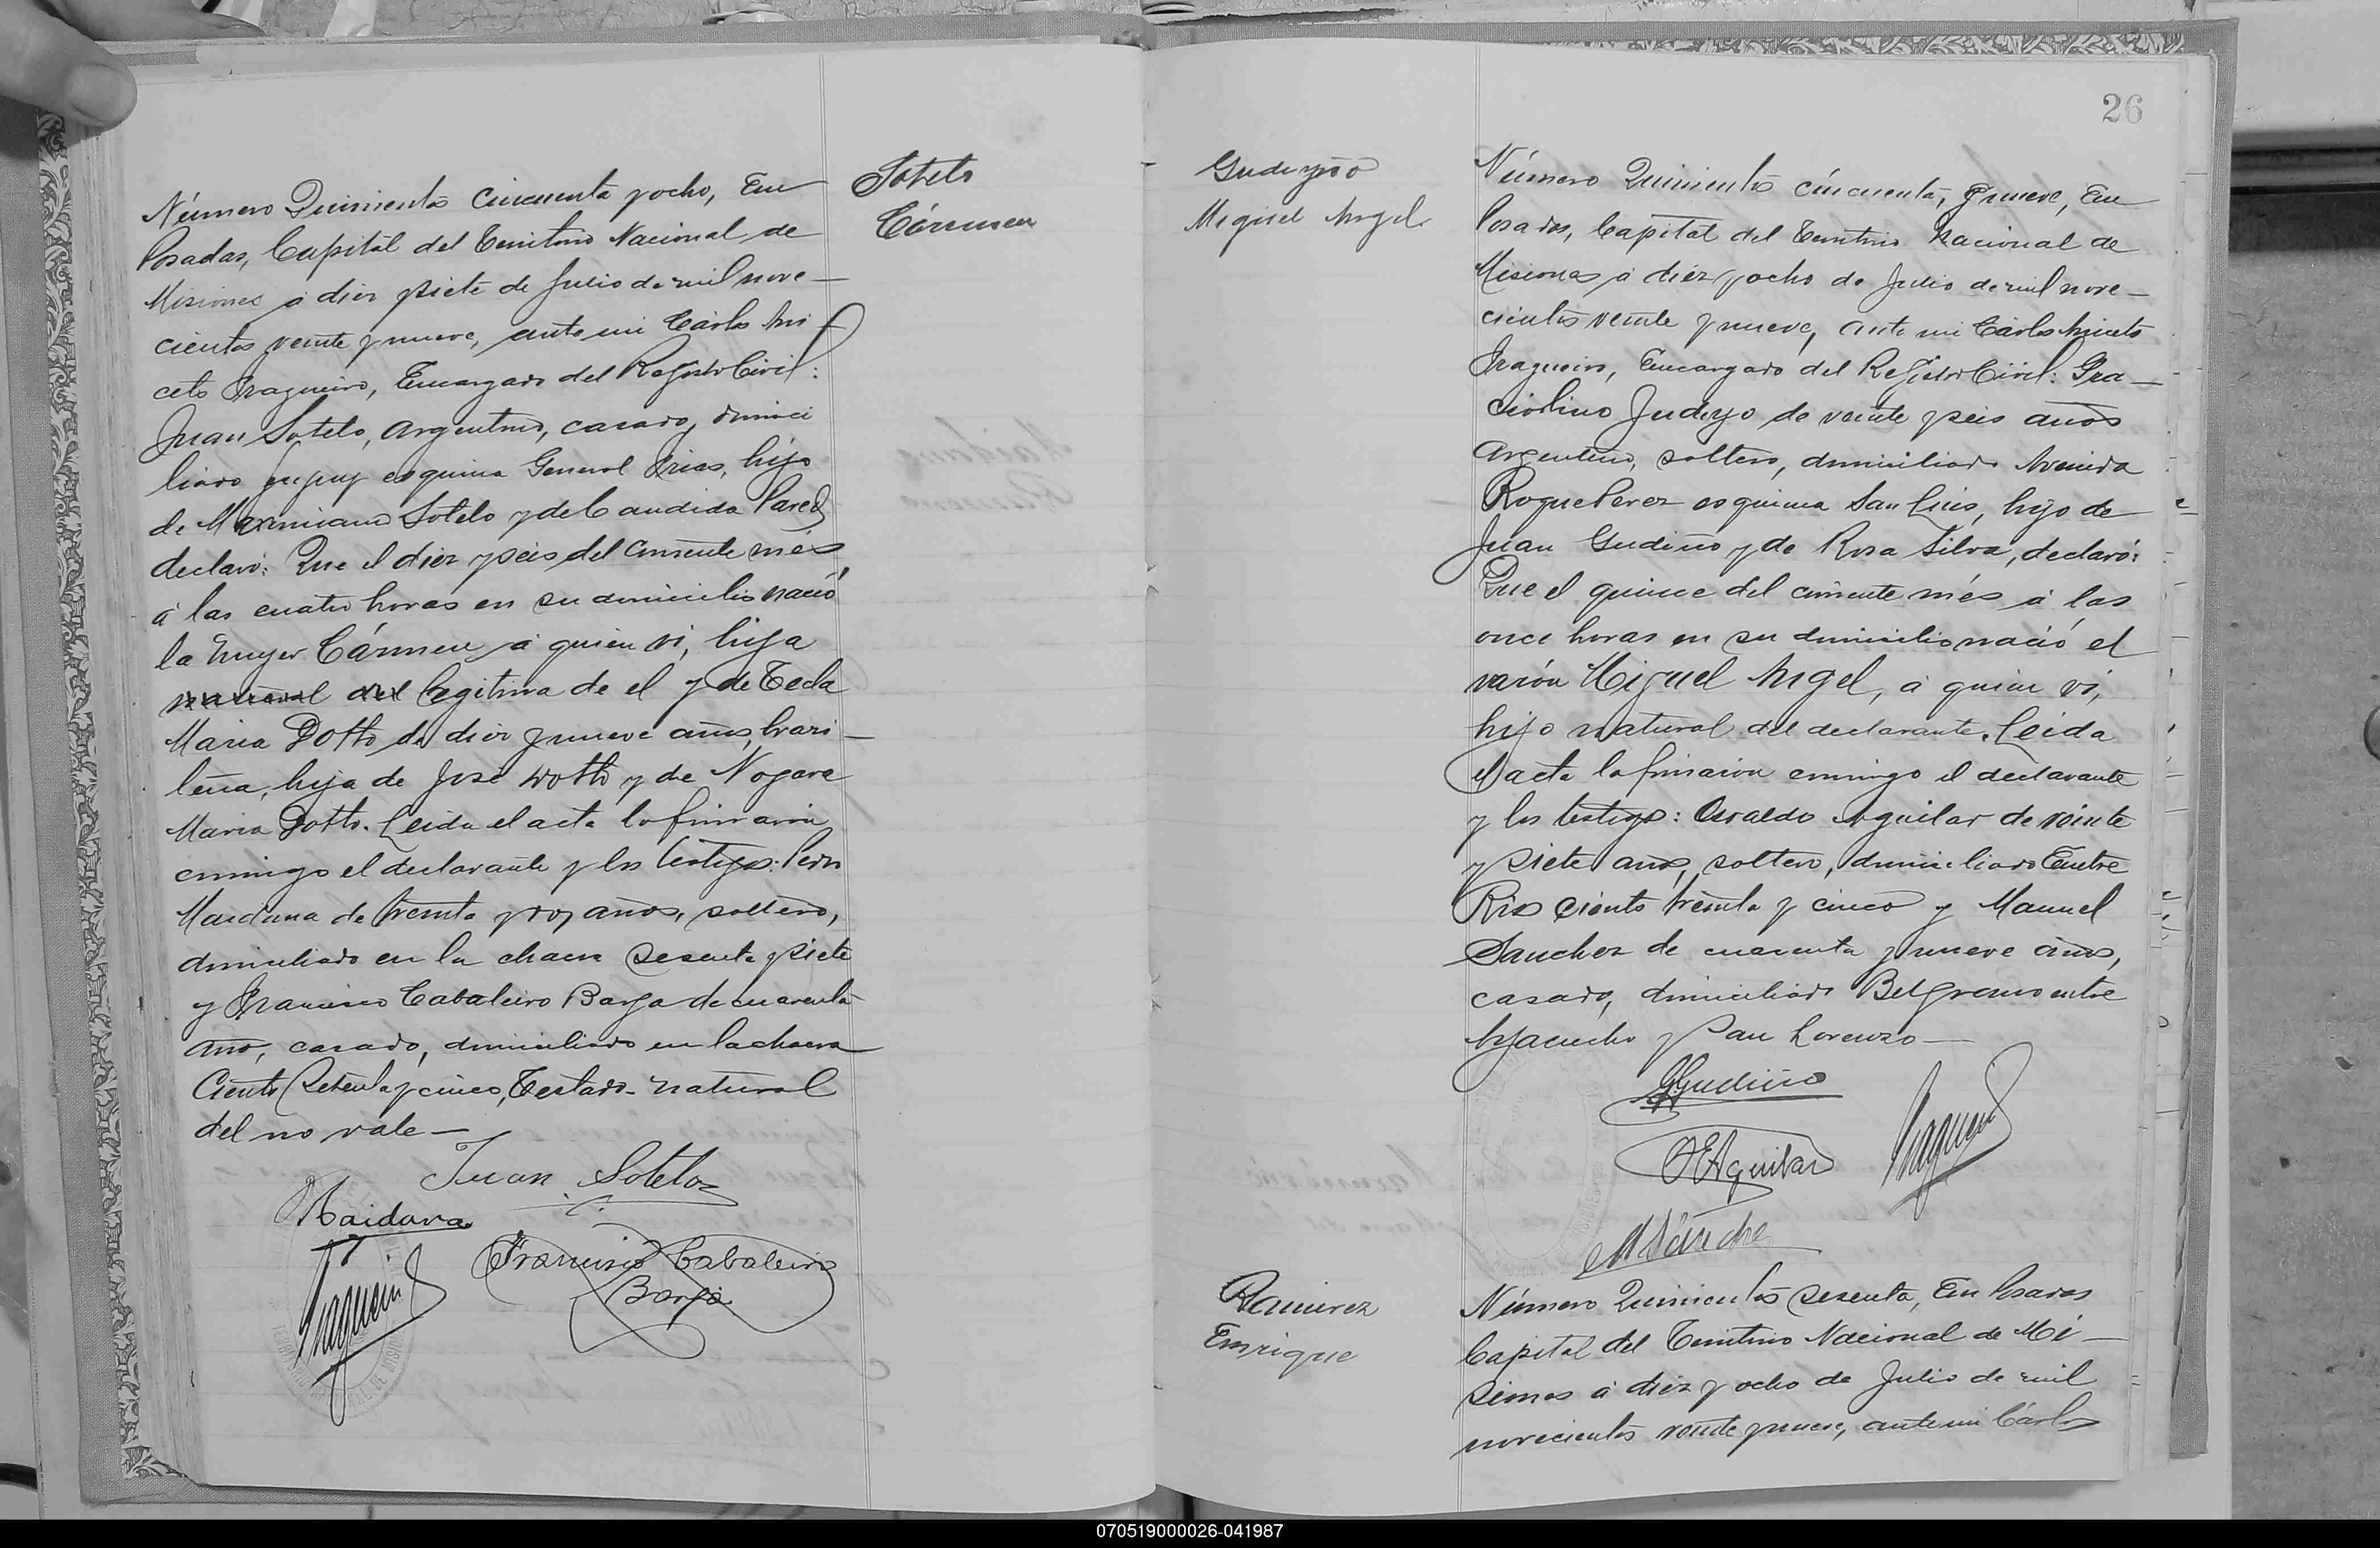 Sotelo
Cármen
Número Quinientos cincuenta y ocho, En
Posadas, Capital del Territorio Nacional de
Misiones á diez y siete de Julio de mil nove-
cientos veinte y nueve, ante mi Cárlos Ani
ceto Fragueiro, Encargado del Registro Civil:
Juan Sotelo, Argentino, casado, domici
liado Jujuy esquina General Frias, hijo
de Maximiano Sotelo y de Candida Pared
declaró: Que el diez y seis del corriente més
á las cuatro horas en su domicilio nació
la muger Cármen á quien vi, hija
natural del legitima de el y de Tecla
Maria Dotto de diez y nueve años, brasi-
leña, hija de José Dotto y de Nogara
Maria Dotto. Leida el acta la firmaron
conmigo el declarante y los testigos: Pedro
Maidana de treinta y dos años, soltero,
domiciliado en la chacra sesenta y siete
y Francisco Cabaleiro Borja de cuarenta
años, casado, domiciliado en la chacra
Ciento Setenta y cinco, Testado - natural
del no vale -
Juan Sotelo
Maidana
Francisco Cabaleiro
Borja
Fragueiro
26
Gudiyño
Miguel Angel
Número Quinientos cincuenta y nueve, En
Posadas, Capital del Territorio Nacional de
Misiones á diez y ocho de Julio de mil nove-
cientos veinte y nueve, ante mi Cárlos Aniceto
Fragueiro, Encargado del Registro Civil: Gra-
ciolino Judiyo de veinte y seis años
Argentino, soltero, domiciliado Avenida
Roque Perez esquina San Luis, hijo de
Juan Gudiño y de Rosa Silva, declaró:
Que el quince del corriente més á las
once horas en su domicilio nació el
varón Miguel Angel, á quien vi,
hijo natural del declarante. Leida
el acta la firmaron conmigo el declarante
y los testigos: Osvaldo Aguilar de veinte
y siete años, soltero, domiciliado Entre
Rios ciento treinta y cinco y Manuel
Sanchez de cuarenta y nueve años,
casado, domiciliado Belgrano entre
Ayacucho y San Lorenzo -
GGudiño
OEAguilar
Fragueiro
M Sánche
Ramirez
Enrique
Número Quinientos sesenta, En Posadas
Capital del Territorio Nacional de Mi-
siones á diez y ocho de Julio de mil
novecientos veinte y nueve, ante mi Cárlos
070519000026-041987